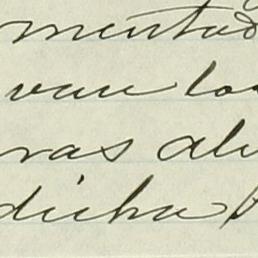 mentad
van los
ras al
dicha